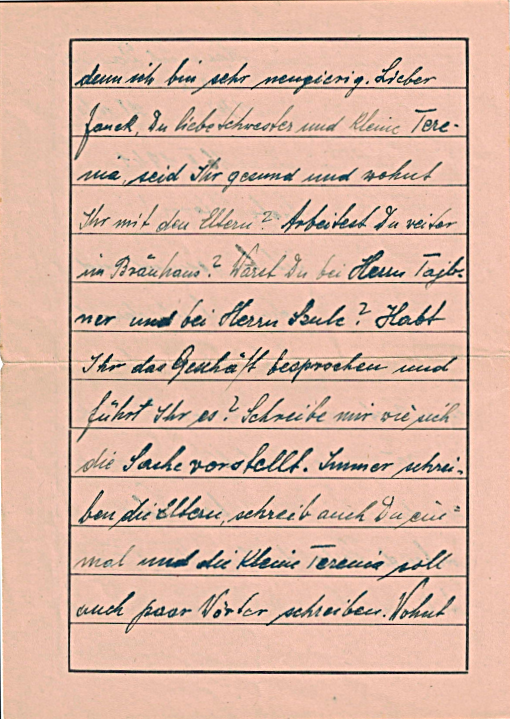 denn ich bin sehr neugierig. Lieber
Janek, Du liebe Schwester und kleine Tere-
nia, seid Ihr gesund und wohnt
Ihr mit den Eltern? Arbeitest Du weiter
im Bräuhaus? Warst Du bei Herrn Tajb-
ner und bei Herrn Szulc? Habt
Ihr das Geschäft besprochen und
führt Ihr es? Schreibe mir wie sich
die Sache vorstellt. Immer schrei-
ben die Eltern, schreib auch Du ein-
mal und die kleine Terenia soll
auch paar Wörter schreiben. Wohnt